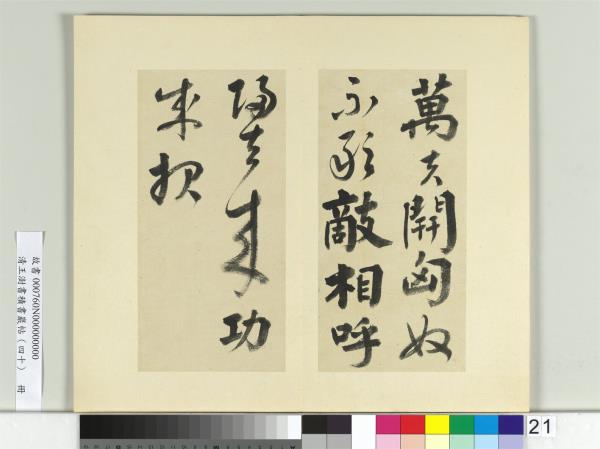 萬夫開匈奴
不敢敵相呼
歸去來功
成報
故書 000760N000000000
清王澍書積書巖帖（四十） 冊
21